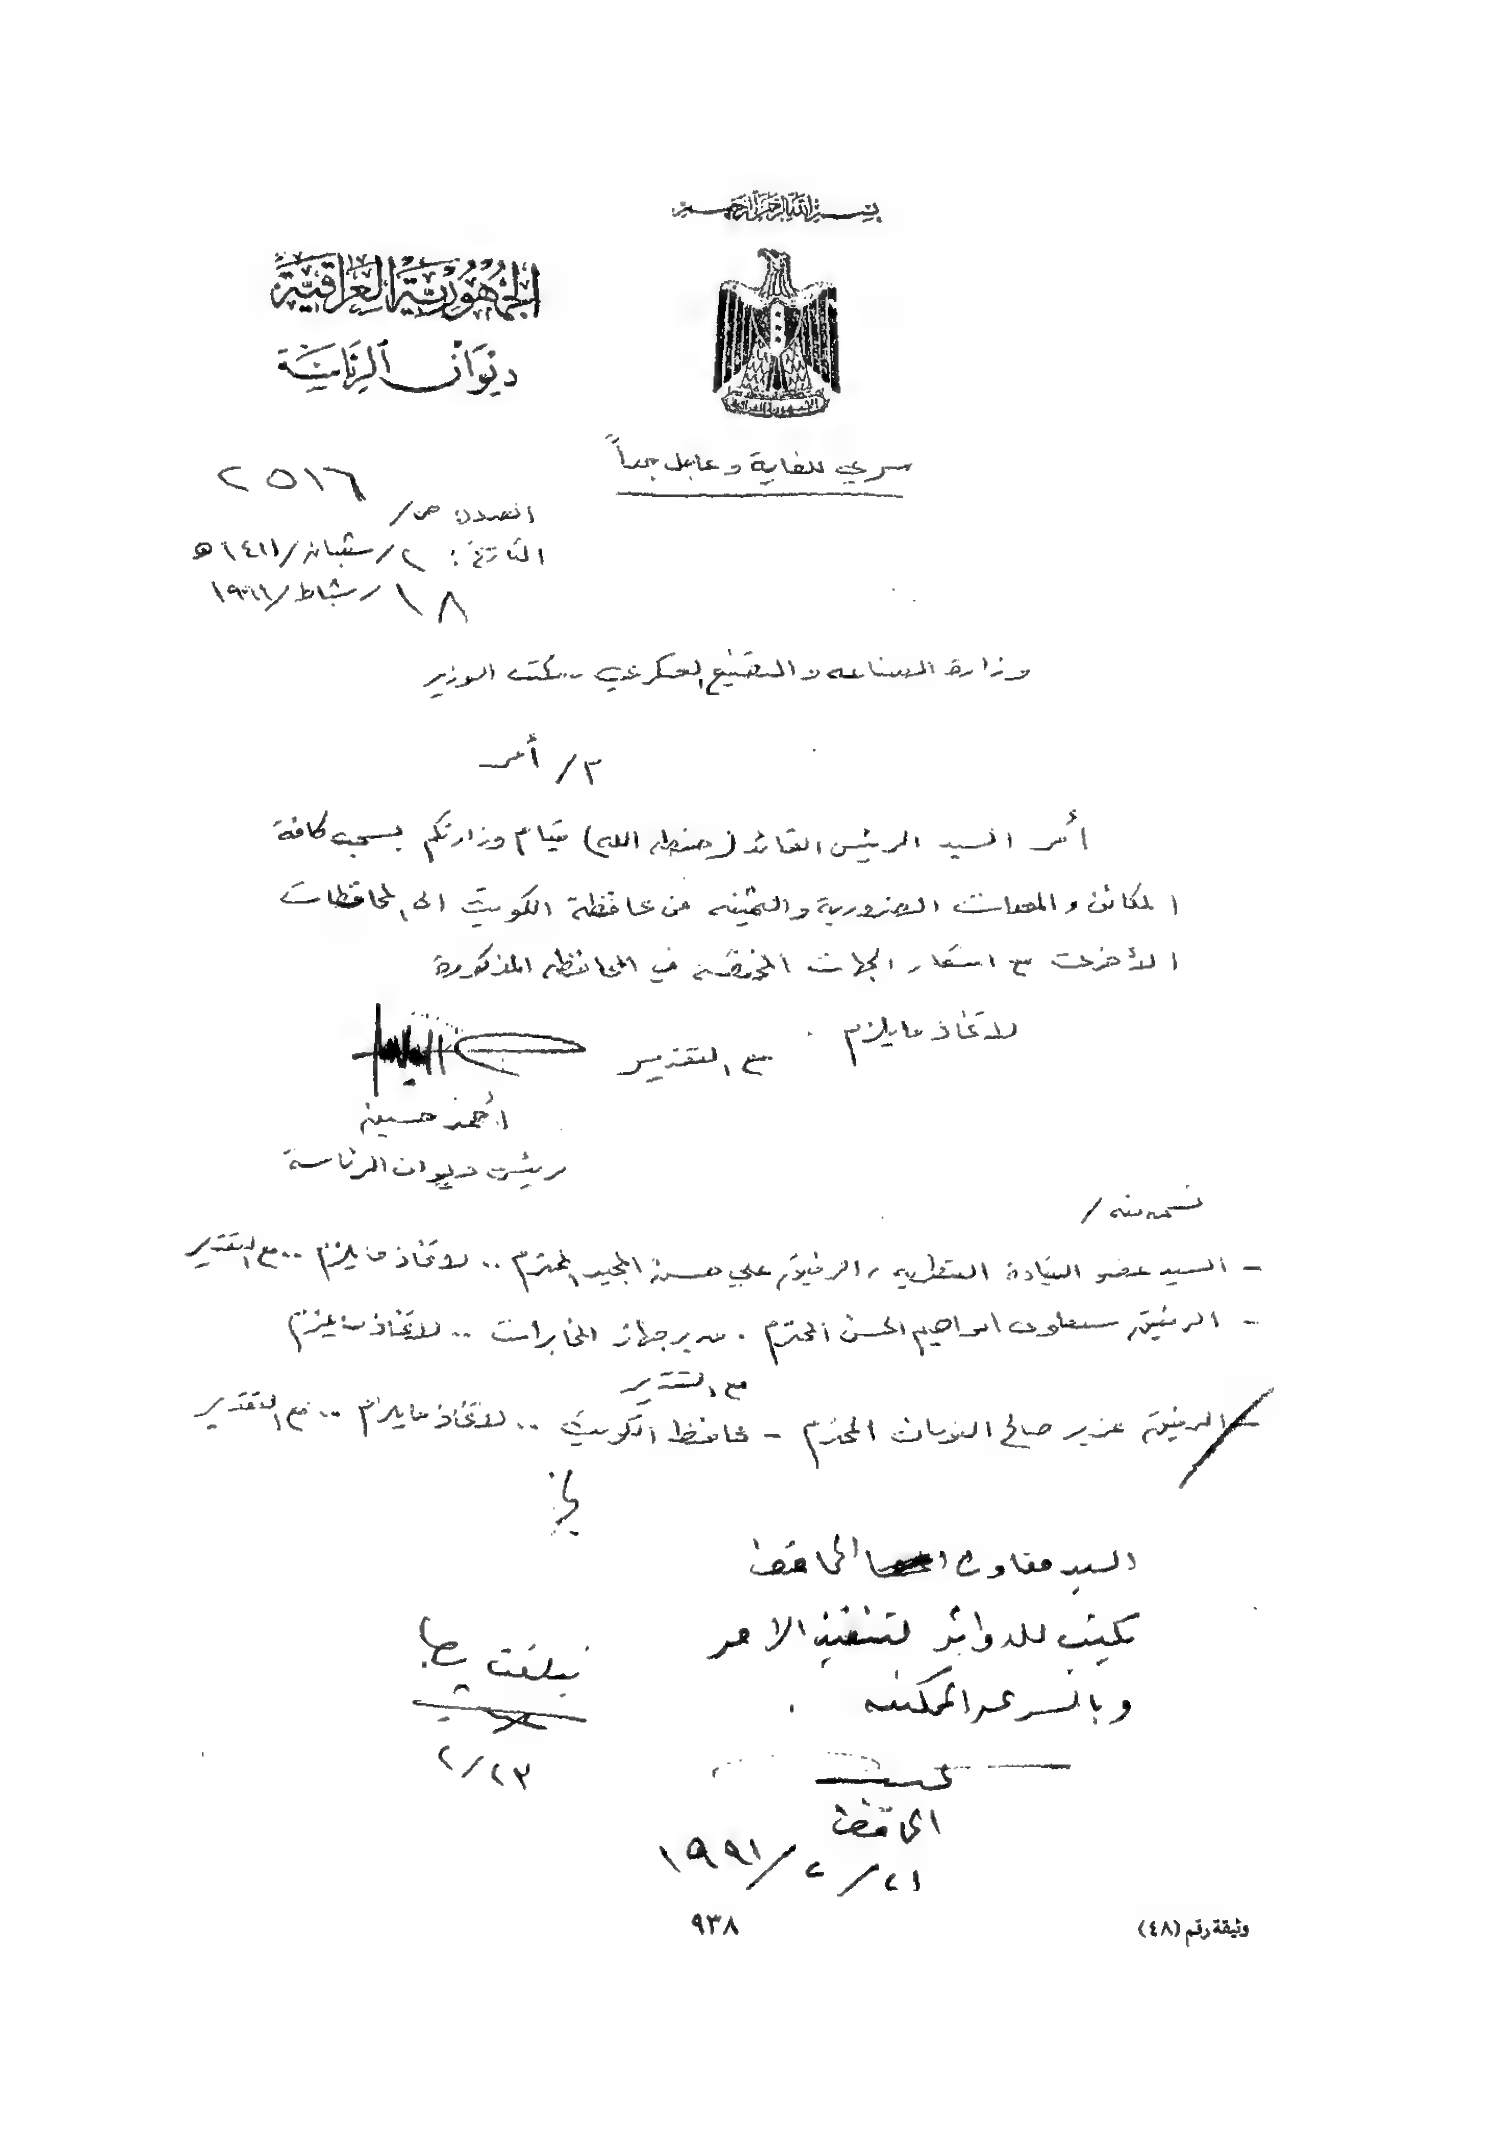 بسم الله الرحمن الرحيم
الجمهورية العراقية
ديوان الرئاسة
سري للغاية وعاجل جداً
العدد: ص/ ٢٥١٦
التاريخ: ٢/شعبان/١٤١١هـ
١٨/شباط/١٩٩١
وزارة الصناعة والتصنيع العسكري .. مكتب الوزير
م/ أمر
أمر السيد الرئيس القائد (حفظه الله) قيام وزارتكم بسحب كافة
المكائن والمعدات الضرورية والثمينه من محافظة الكويت الى المحافظات
الأخرى مع اشعار الجهات المختصة في المحافظه المذكورة
لاتخاذ مايلزم .
مع التقدير
أحمد حسين
رئيس ديوان الرئاسة
نسخه منه /
- السيد عضو القيادة القطريه ، الرفيق علي حسن المجيد المحترم .. لاتخاذ مايلزم .. مع التقدير
- الرفيق سبعاوي ابراهيم الحسن المحترم . مدير جهاز المخابرات .. لاتخاذ مايلزم
مع التقدير
- الرفيق عزيز صالح النومان المحترم - محافظ الكويت .. لاتخاذ مايلزم .. مع التقدير
السيد معاون المحافظ
يكتب للدوائر لتنفيذ الامر
وبالسرعه الممكنه .
المحافظ
٢١/٢/١٩٩١
٢٣/٢
وثيقة رقم (٤٨)
٩٣٨